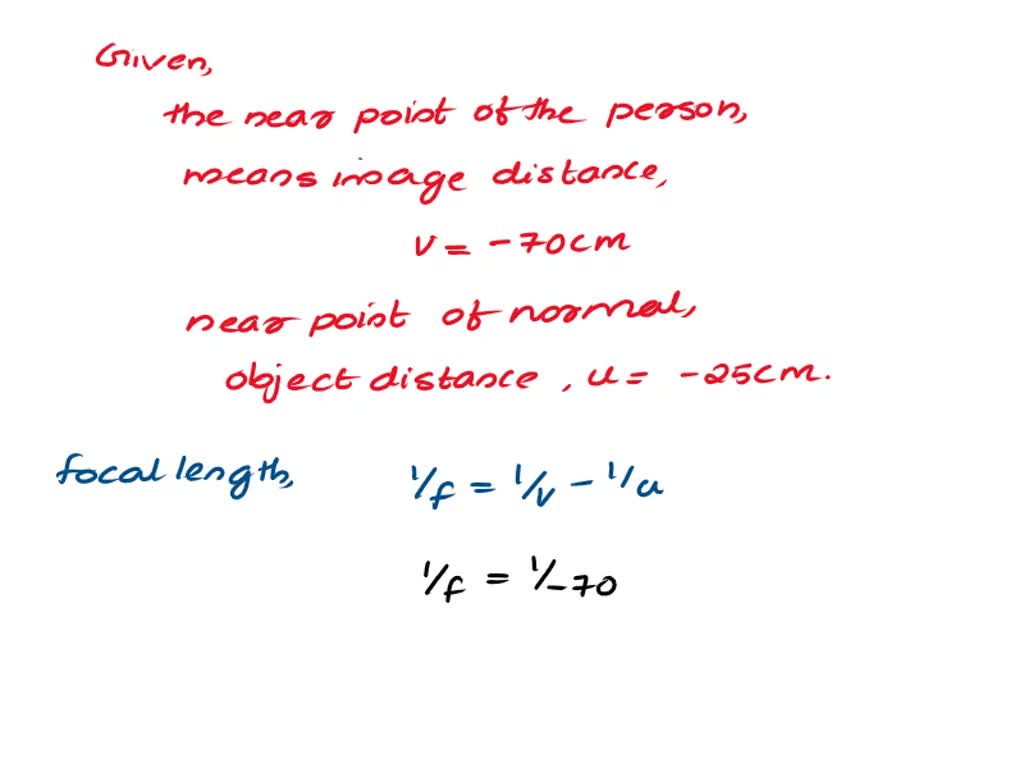 Given,
the near point of the person,
means image distance,
v = -70cm
near point of normal,
object distance, u = -25cm.
focal length, 1/f = 1/v - 1/u
1/f = 1/-70